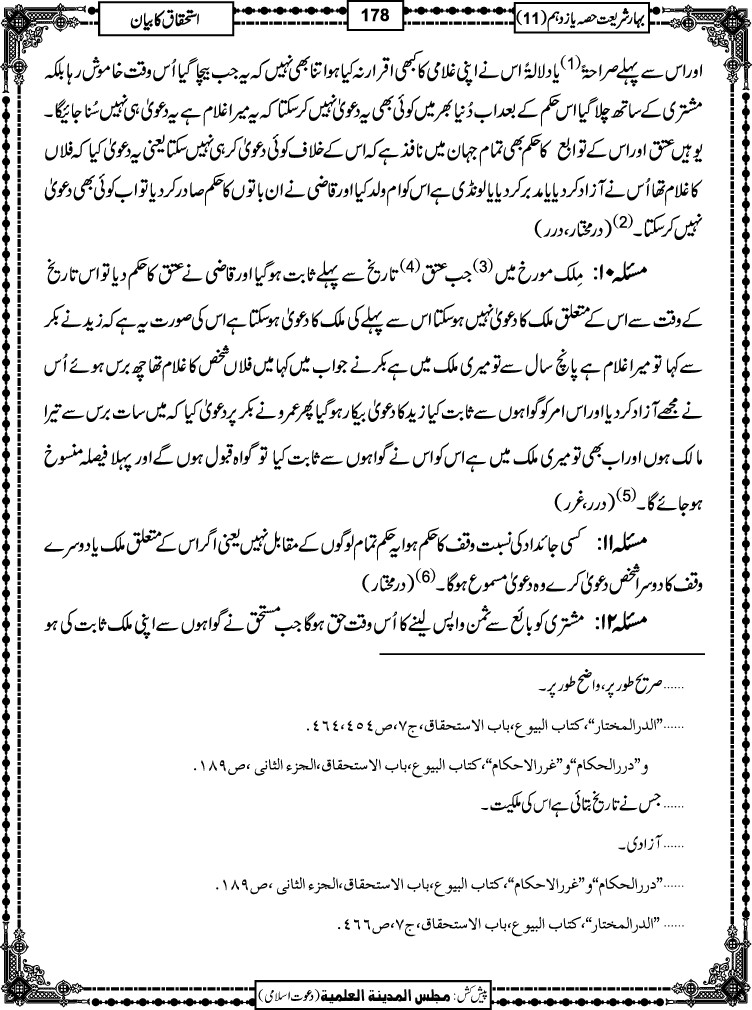 بہارِ شریعت حصہ یازدہم (11)
178
استحقاق کا بیان
اور اس سے پہلے صراحۃً (1) یا دلالۃً اس نے اپنی غلامی کا کبھی اقرار نہ کیا ہو اتنا بھی نہیں کہ یہ جب بیچا گیا اُس وقت خاموش رہا بلکہ
مشتری کے ساتھ چلا گیا اس حکم کے بعد اب دُنیا بھر میں کوئی بھی یہ دعویٰ نہیں کرسکتا کہ یہ میرا غلام ہے یہ دعویٰ ہی نہیں سُنا جائیگا۔
یوہیں عتق اور اس کے توابع کا حکم بھی تمام جہان میں نافذ ہے کہ اس کے خلاف کوئی دعویٰ کر ہی نہیں سکتا یعنی یہ دعویٰ کیا کہ فلاں
کا غلام تھا اُس نے آزاد کردیا یا مدبر کردیا یا لونڈی ہے اس کو ام ولد کیا اور قاضی نے ان باتوں کا حکم صادر کردیا تو اب کوئی بھی دعویٰ
نہیں کرسکتا۔(2) (درمختار، درر)
مسئلہ ۱۰: مِلک مورخ میں (3) جب عتق (4) تاریخ سے پہلے ثابت ہوگیا اور قاضی نے عتق کا حکم دیا تو اس تاریخ
کے وقت سے اس کے متعلق ملک کا دعویٰ نہیں ہوسکتا اس سے پہلے کی ملک کا دعویٰ ہوسکتا ہے اس کی صورت یہ ہے کہ زید نے بکر
سے کہا تو میرا غلام ہے پانچ سال سے تو میری ملک میں ہے بکر نے جواب میں کہا میں فلاں شخص کا غلام تھا چھ برس ہوئے اُس
نے مجھے آزاد کردیا اور اس امر کو گواہوں سے ثابت کیا زید کا دعویٰ بیکار ہوگیا پھر عمرو نے بکر پر دعویٰ کیا کہ میں سات برس سے تیرا
مالک ہوں اور اب بھی تو میری ملک میں ہے اس کو اس نے گواہوں سے ثابت کیا تو گواہ قبول ہوں گے اور پہلا فیصلہ منسوخ
ہو جائے گا۔(5) (درر، غرر)
مسئلہ ۱۱: کسی جائداد کی نسبت وقف کا حکم ہوا یہ حکم تمام لوگوں کے مقابل نہیں یعنی اگر اس کے متعلق ملک یا دوسرے
وقف کا دوسرا شخص دعویٰ کرے وہ دعویٰ مسموع ہوگا۔(6) (درمختار)
مسئلہ ۱۲: مشتری کو بائع سے ثمن واپس لینے کا اُس وقت حق ہوگا جب مستحق نے گواہوں سے اپنی ملک ثابت کی ہو
......صریح طور پر، واضح طور پر۔
......”الدرالمختار“،کتاب البیوع،باب الاستحقاق،ج۷،ص٤٦٤،٤٥٤.
و”دررالحکام“و”غررالاحکام“،کتاب البیوع،باب الاستحقاق،الجزء الثانی ،ص۱۸۹.
......جس نے تاریخ بتائی ہے اس کی ملکیت۔
......آزادی۔
......”دررالحکام“و”غررالاحکام“،کتاب البیوع،باب الاستحقاق،الجزء الثانی ،ص۱۸۹.
......”الدرالمختار“،کتاب البیوع،باب الاستحقاق،ج۷،ص٤٦٦.
پیش کش: مجلس المدینة العلمیة (دعوت اسلامی)